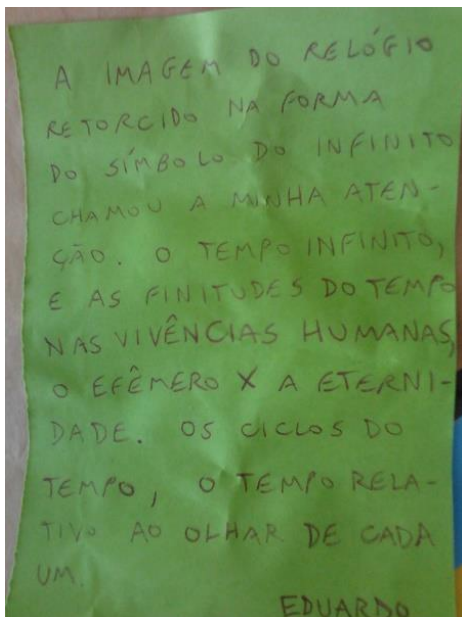 A IMAGEM DO RELÓGIO
RETORCIDO NA FORMA
DO SÍMBOLO DO INFINITO
CHAMOU A MINHA ATEN-
ÇÃO. O TEMPO INFINITO,
E AS FINITUDES DO TEMPO
NAS VIVÊNCIAS HUMANAS,
O EFÊMERO X A ETERNI-
DADE. OS CICLOS DO
TEMPO, O TEMPO RELA-
TIVO AO OLHAR DE CADA
UM.
EDUARDO